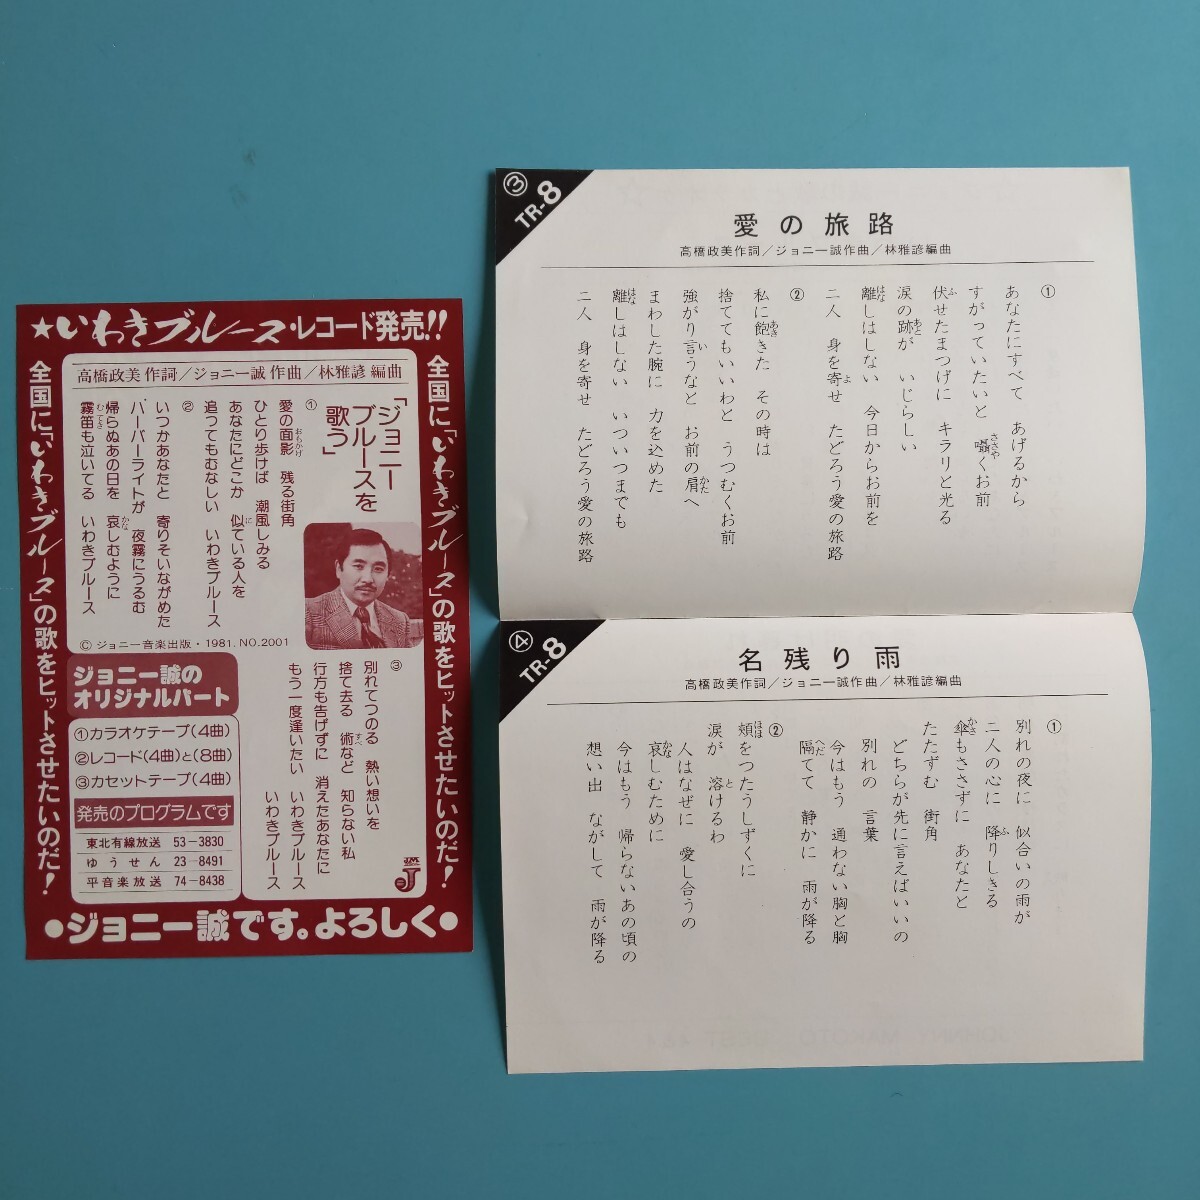 ★いわきブルース・レコード発売!!
全国に「いわきブルース」の歌をヒットさせたいのだ!
全国に「いわきブルース」の歌をヒットさせたいのだ!
高橋政美 作詞／ジョニー誠 作曲／林雅諺 編曲
「ジョニー
ブルースを
歌う」
①
愛の面影　残る街角
ひとり歩けば　潮風しみる
あなたにどこか　似ている人を
追ってもむなしい　いわきブルース
②
いつかあなたと　寄りそいながめた
ハーバーライトが　夜霧にうるむ
帰らぬあの日を　哀しむように
霧笛も泣いてる　いわきブルース
© ジョニー音楽出版・1981. NO.2001
③
別れてつのる　熱い想いを
捨て去る　術など　知らない私
行方も告げずに　消えたあなたに
もう一度逢いたい　いわきブルース
いわきブルース
ジョニー誠の
オリジナルパート
①カラオケテープ(4曲)
②レコード(4曲)と(8曲)
③カセットテープ(4曲)
発売のプログラムです
東北有線放送 53-3830
ゆうせん 23-8491
平音楽放送 74-8438
JM
J
●ジョニー誠です。よろしく●
③
TR-8
愛の旅路
高橋政美作詞／ジョニー誠作曲／林雅諺編曲
①
あなたにすべて　あげるから
すがっていたいと　囁くお前
伏せたまつげに　キラリと光る
涙の跡が　いじらしい
離しはしない　今日からお前を
二人　身を寄せ　たどろう愛の旅路
②
私に飽きた　その時は
捨ててもいいわと　うつむくお前
強がり言うなと　お前の肩へ
まわした腕に　力を込めた
離しはしない　いついつまでも
二人　身を寄せ　たどろう愛の旅路
④
TR-8
名残り雨
高橋政美作詞／ジョニー誠作曲／林雅諺編曲
①
別れの夜に　似合いの雨が
二人の心に　降りしきる
傘もささずに　あなたと
たたずむ　街角
どちらが先に言えばいいの
別れの　言葉
今はもう　通わない胸と胸
隔てて　静かに　雨が降る
②
頬をつたうしずくに
涙が　溶けるわ
人はなぜに　愛し合うの
哀しむために
今はもう　帰らないあの頃の
想い出　ながして　雨が降る